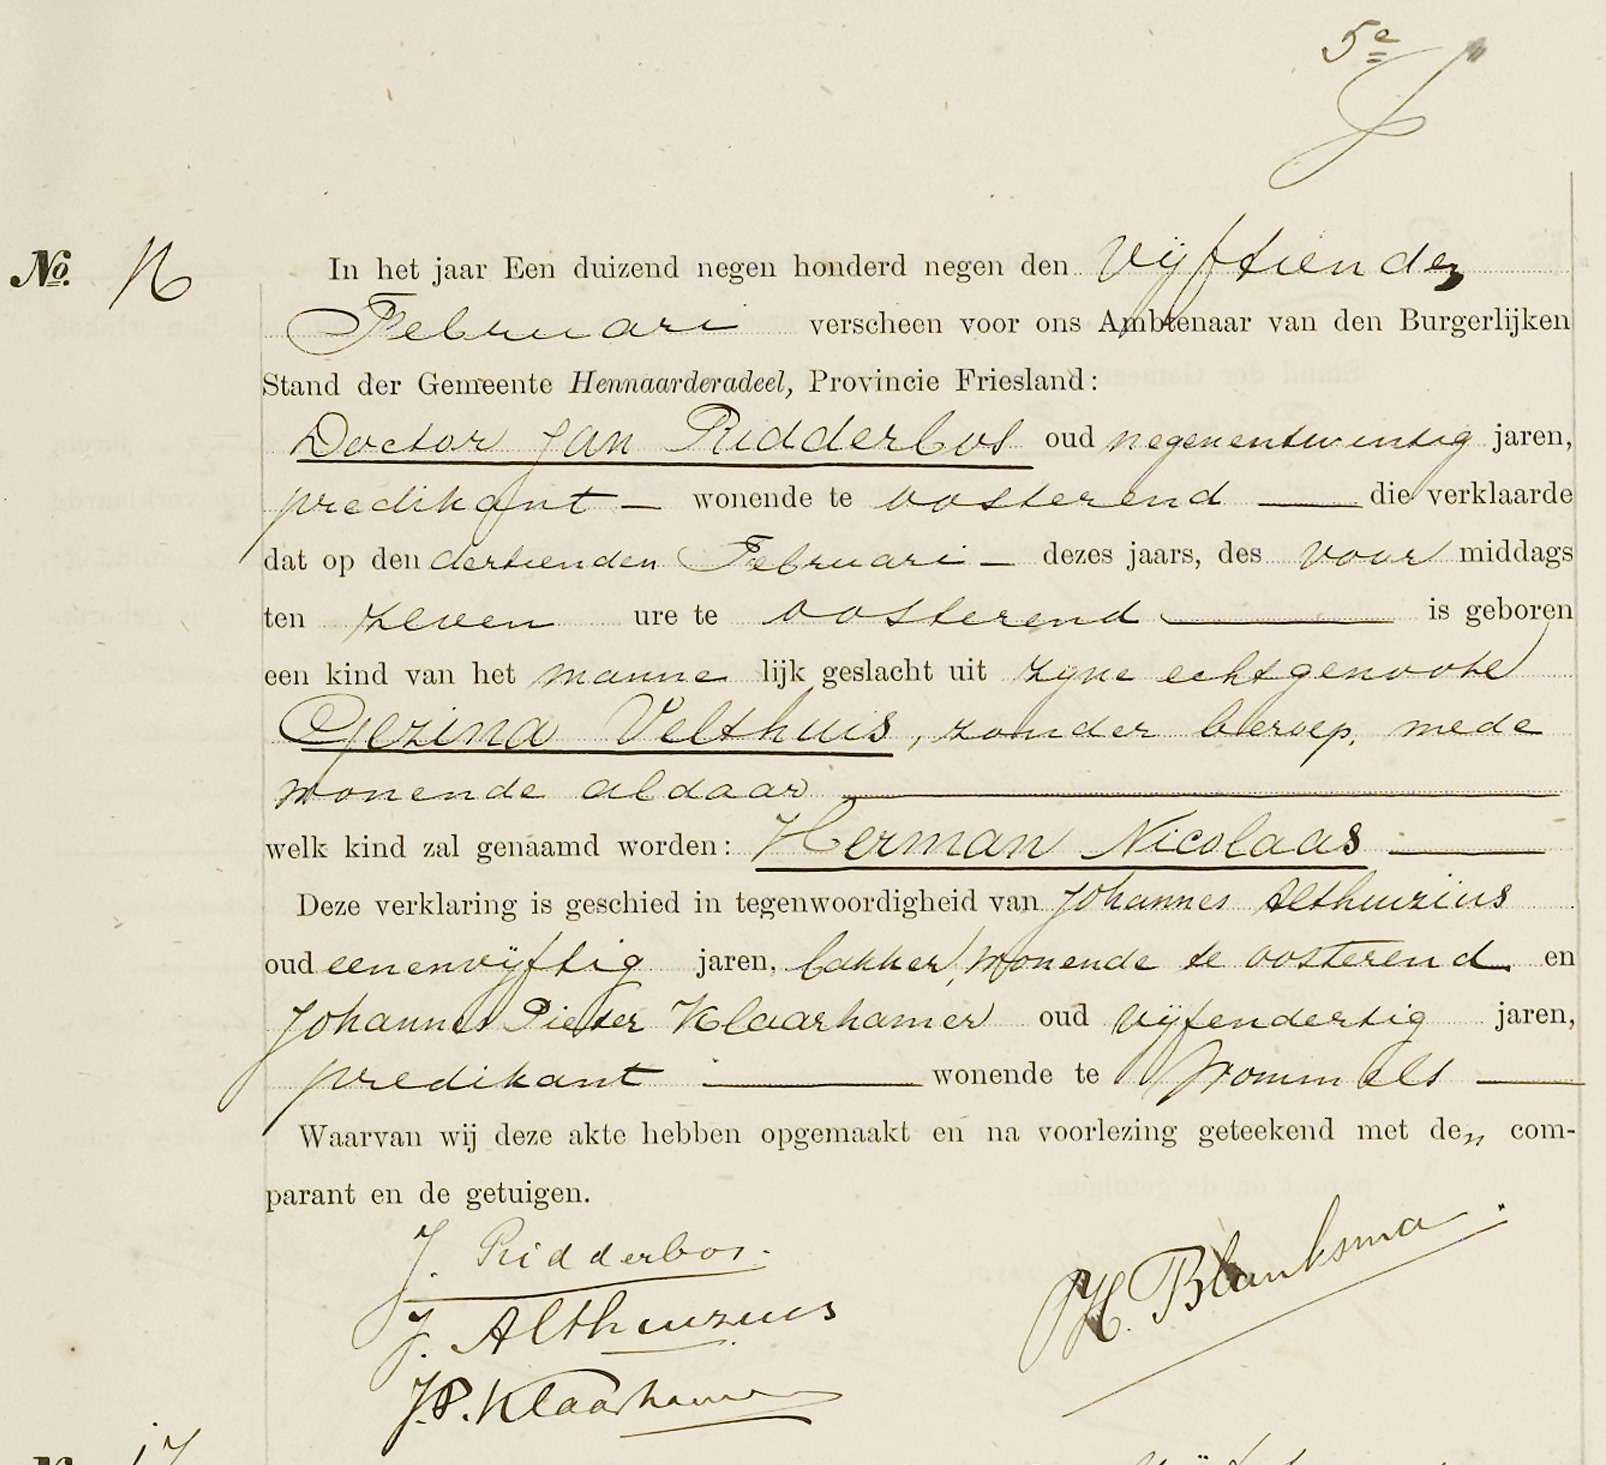 5e
No. 16
In het jaar Een duizend negen honderd negen den vijftienden
Februari verscheen voor ons Ambtenaar van den Burgerlijken
Stand der Gemeente Hennaarderadeel, Provincie Friesland:
Doctor Jan Ridderbos oud negenentwintig jaren,
predikant — wonende te Oosterend — die verklaarde
dat op den dertienden Februari — dezes jaars, des voor middags
ten zeven ure te Oosterend — is geboren
een kind van het manne lijk geslacht uit zijne echtgenoote
Gezina Velthuis, zonder beroep, mede
wonende aldaar —
welk kind zal genaamd worden: Herman Nicolaas —
Deze verklaring is geschied in tegenwoordigheid van Johannes Althuizius
oud eenenvijftig jaren, bakker, wonende te Oosterend en
Johannes Pieter Klaarhamer oud vijfendertig jaren,
predikant — wonende te Wommels —
Waarvan wij deze akte hebben opgemaakt en na voorlezing geteekend met den com-
parant en de getuigen.
J. Ridderbos.
H. Blanksma.
J. Althuizius
J.P. Klaarhamer
17